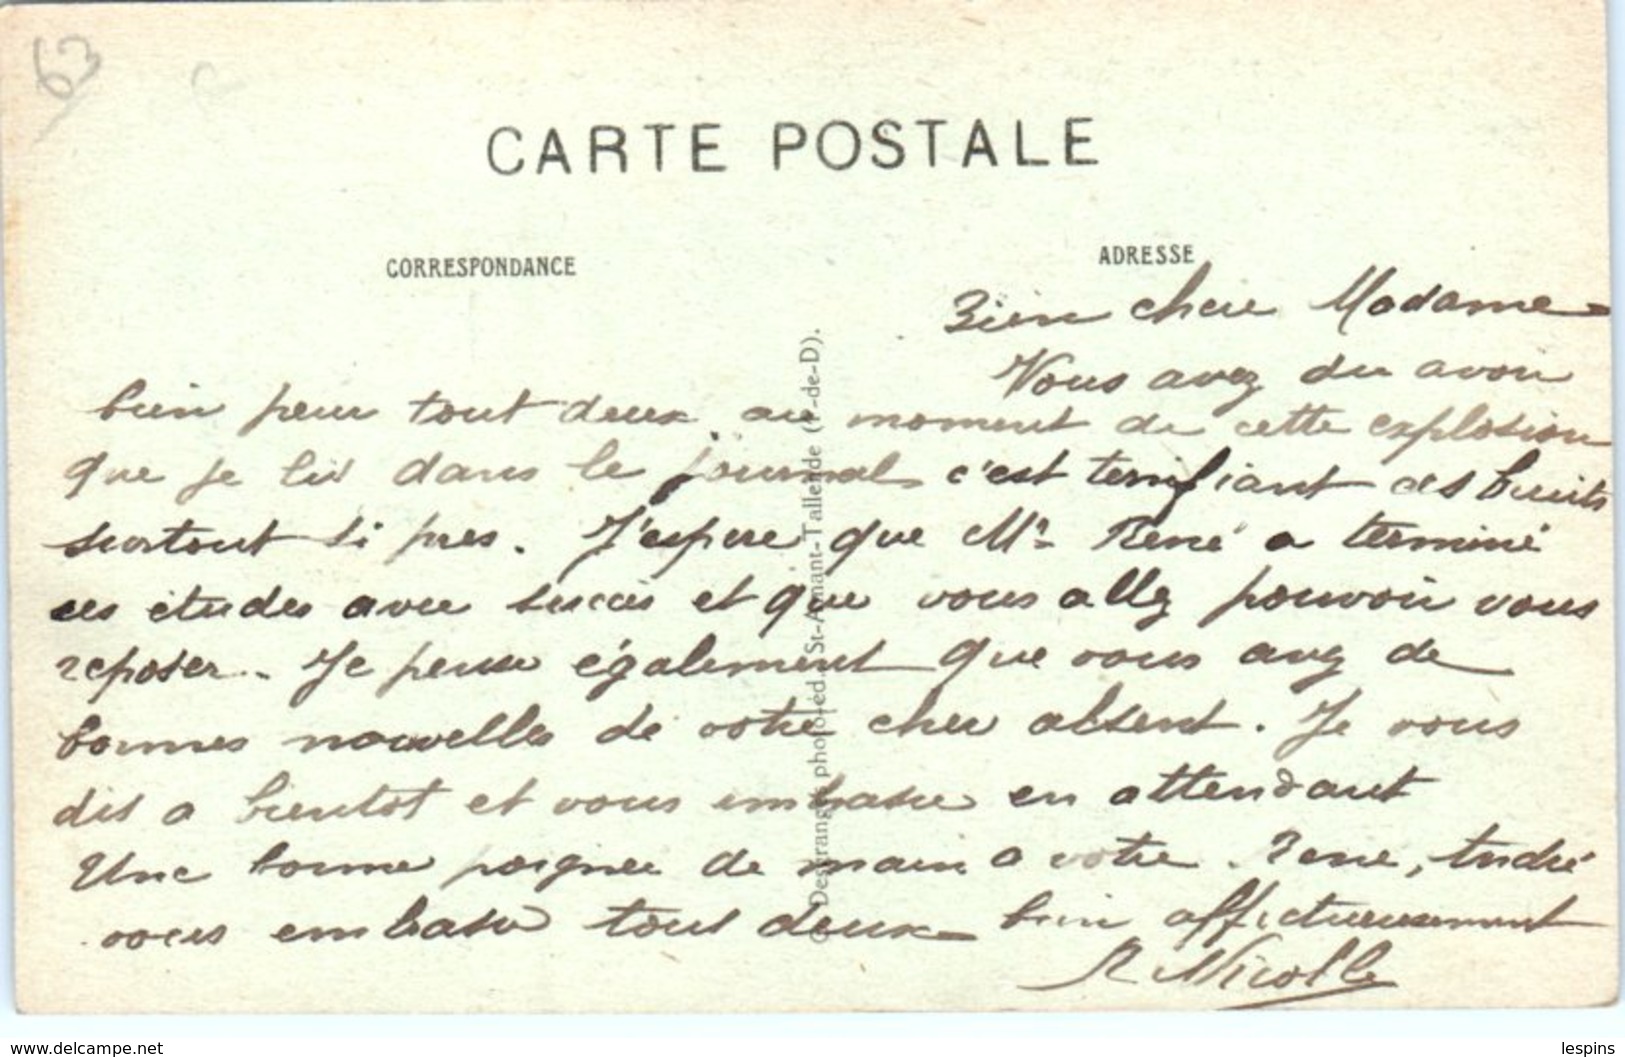 63
CARTE POSTALE
CORRESPONDANCE
ADRESSE
Bien chere Madame
Vous avez du avoir
bien peur tout deux au moment de cette explosion
que je lis dans le journal c'est terrifiant ces bruits
surtout si pres. J'espere que Mr René a terminé
ces études avec succès et que vous allez pouvoir vous
reposer. Je pense également que vous avez de
bonnes nouvelles de votre cher absent. Je vous
dis a bientot et vous embrasse en attendant
Une bonne poignee de main a votre Rene, André
vous embrasse tous deux bien affectueusement
R Nicolle
Desgranges photo-éd. St-Amant-Tallende (P-de-D).
www.delcampe.net
lespins